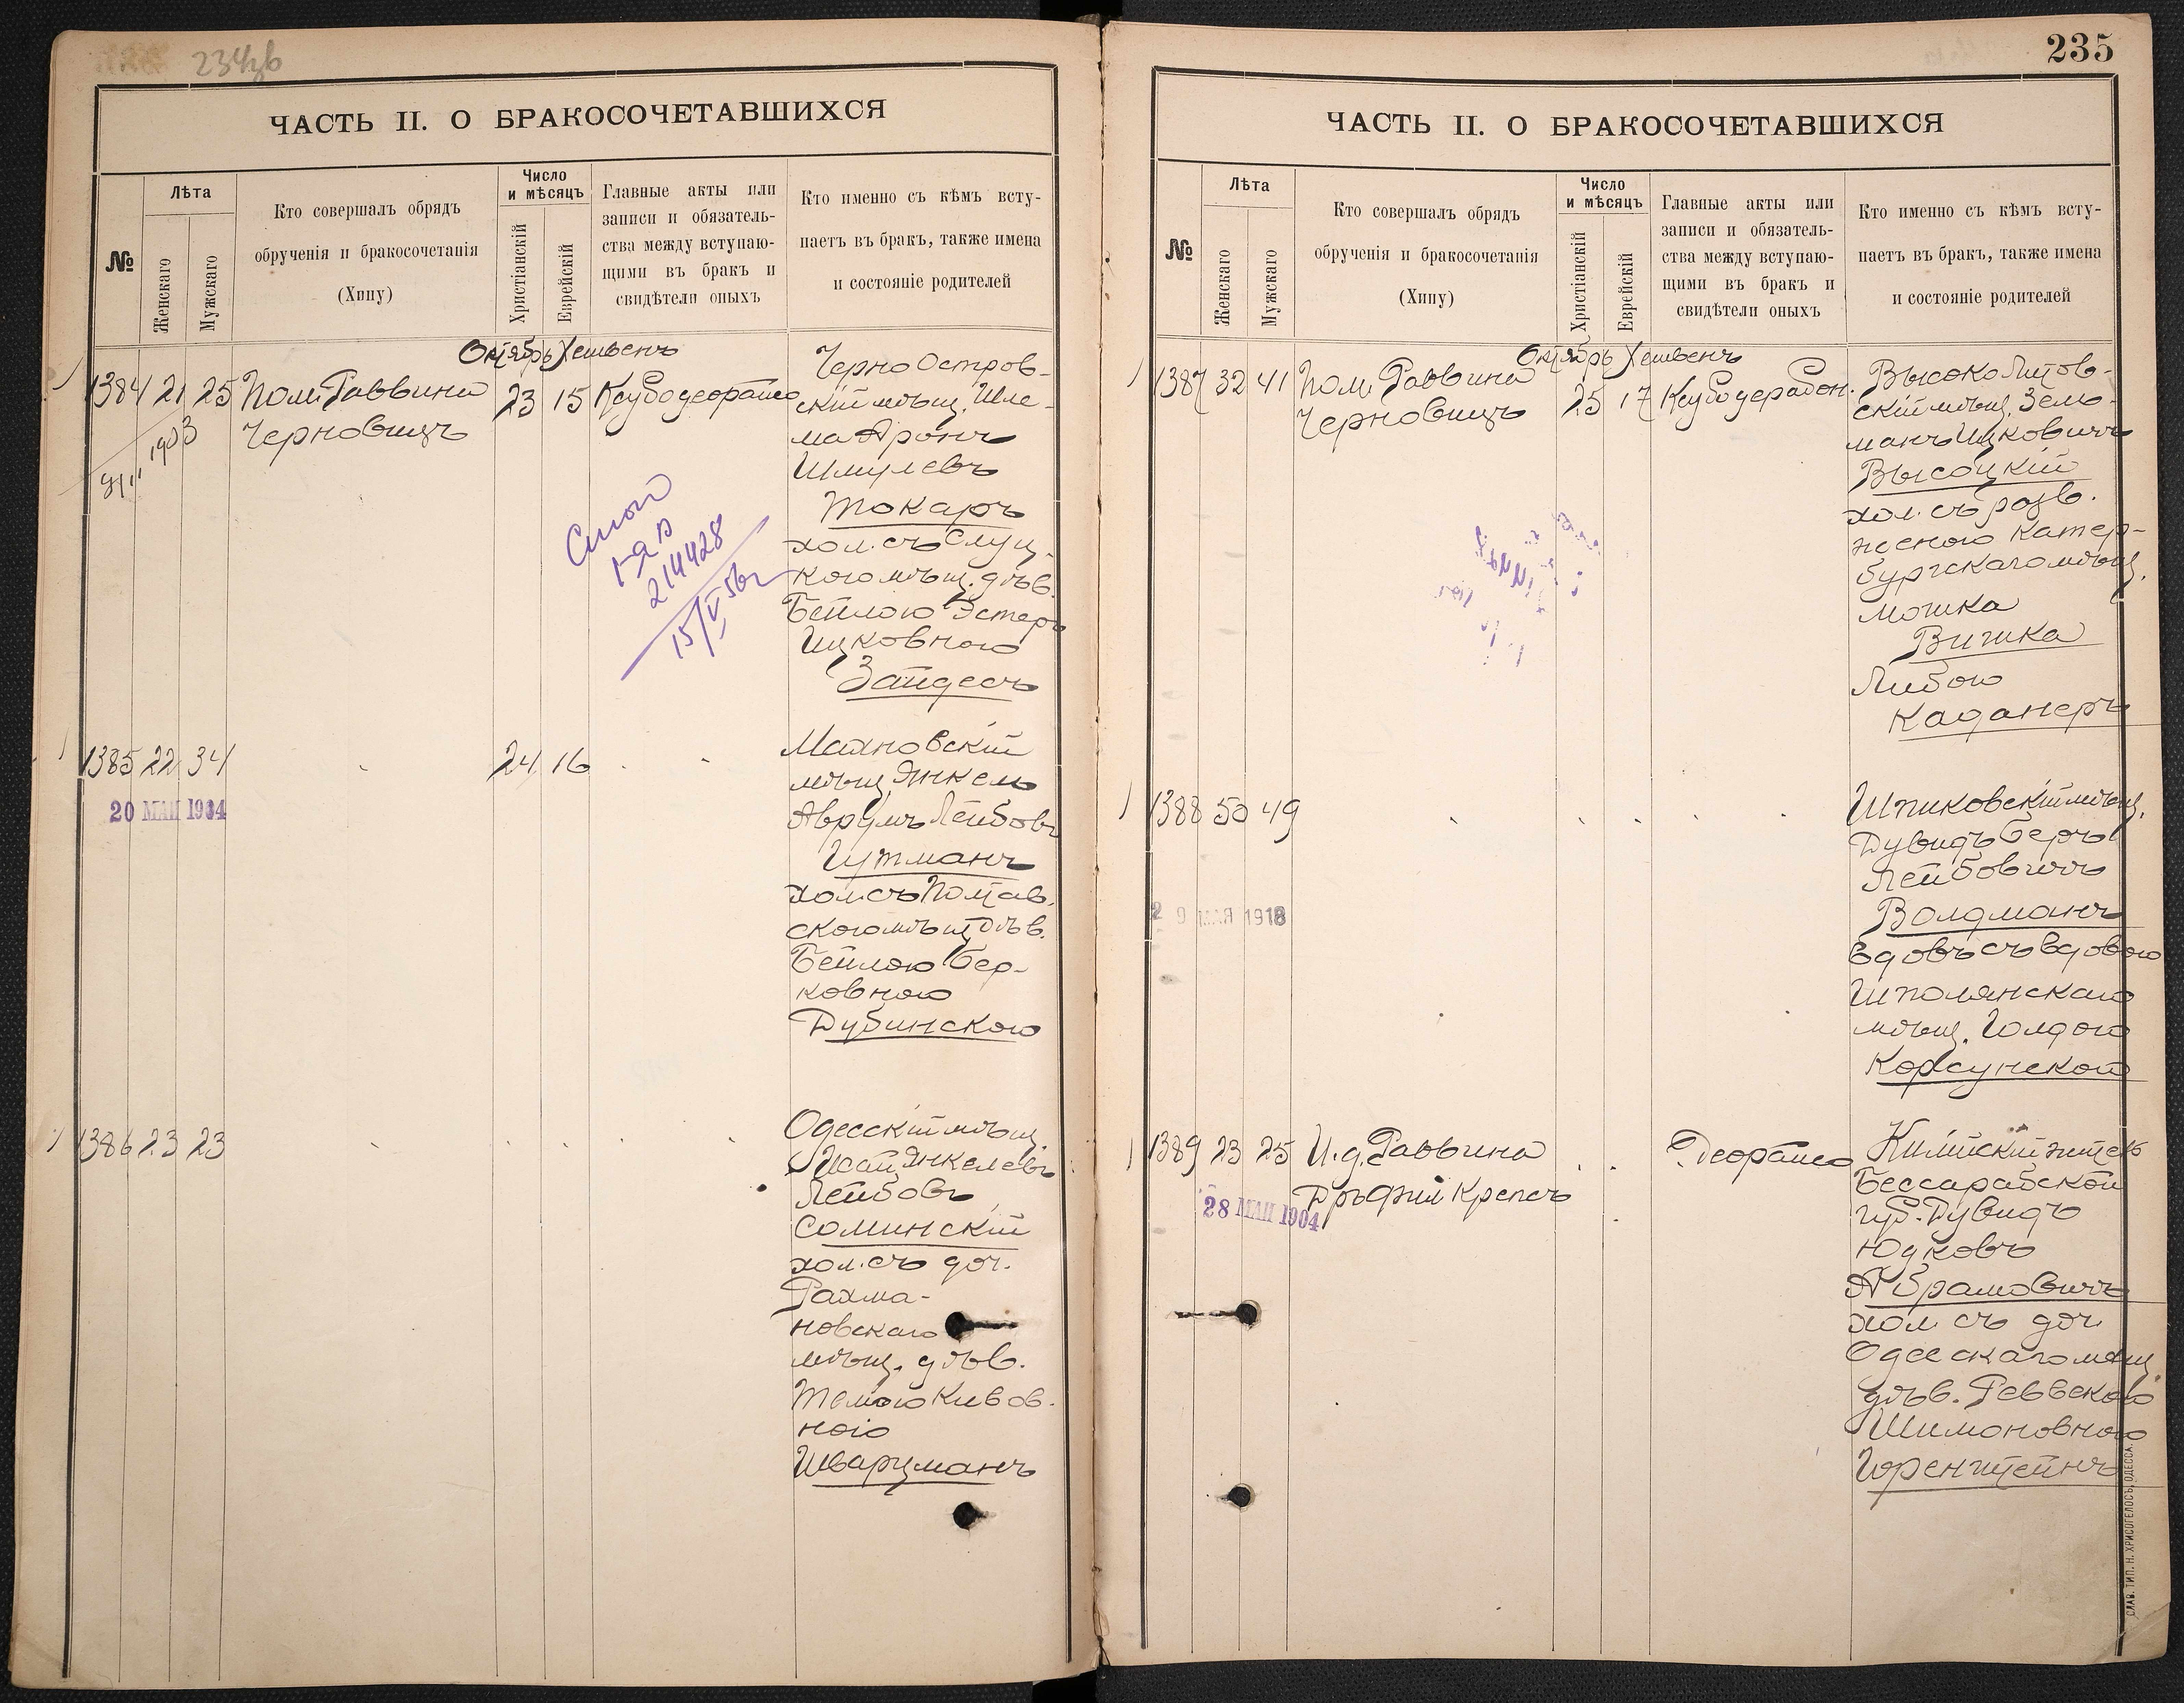 234зв
ЧАСТЬ II. О БРАКОСОЧЕТАВШИХСЯ
№
Лѣта
Женскаго
Мужскаго
Кто совершалъ обрядъ
обрученія и бракосочетанія
(Хипу)
Число
и мѣсяцъ
Христіанскій
Еврейскій
Главные акты или
записи и обязатель-
ства между вступаю-
щими въ бракъ и
свидѣтели оныхъ
Кто именно съ кѣмъ всту-
паетъ въ бракъ, также имена
и состояніе родителей
Октябрь Хешвенъ
1384 21 25 Пом. Раввина 23 15
Черновицъ
1903
15/V 56г
214428
Черно Остров-
скій мѣщ. Шле-
ма Аронъ
Шмулевъ
Токаръ
хол. съ Слуц-
кою мѣщ. дѣв.
Бейлою Эстеръ
Ицковною
Зайдесъ
1385 22 34 24 16
20 МАЙ 1904
Махновскій
мѣщ. Янкель
Аврумъ Лейбовъ
Гутманъ
хол. съ Полтав.
скою мѣщ. дѣв.
Бейлою Бер-
ковною
Дубинскою
1386 23 23
Одесскій мѣщ.
Исай Янкелевъ
Лейбовъ
Соминскій
хол. съ доч.
Рахма-
новскаго
мѣщ. дѣв.
Темою Кивов-
ною
Шварцманъ
235
ЧАСТЬ II. О БРАКОСОЧЕТАВШИХСЯ
№
Лѣта
Женскаго
Мужскаго
Кто совершалъ обрядъ
обрученія и бракосочетанія
(Хипу)
Число
и мѣсяцъ
Христіанскій
Еврейскій
Главные акты или
записи и обязатель-
ства между вступаю-
щими въ бракъ и
свидѣтели оныхъ
Кто именно съ кѣмъ всту-
паетъ въ бракъ, также имена
и состояніе родителей
Октябрь Хешвенъ
1387 32 41 Пом. Раввина 25 17
Черновицъ
Высоко Литов-
скій мѣщ. Зель-
манъ Ицковичъ
Высоцкій
хол. съ разв.
женою Катер-
бургскаго мѣщ.
Мошка
Вишка
Либою
Каданеръ
1388 50 49
29 МАЯ 1918
Шпиковскій мѣщ.
Дувидъ Беръ
Лейбовичъ
Волдманъ
вдовъ съ вдовою
Шполянскаго
мѣщ. Голдою
Корсунской
1389 23 25 И. д. Раввина
Дръ Фил Крепсъ
28 МАЙ 1904
Килійскій житель
Бессарабской
губ. Дувидъ
Юдковъ
Абрамовичъ
хол. съ доч.
Одесскаго мѣщ.
дѣв. Реввекою
Шимоновною
Горенштейнъ
СЛАВ. ТИП. Н. ХРИСОГЕЛОСЪ, ОДЕССА.